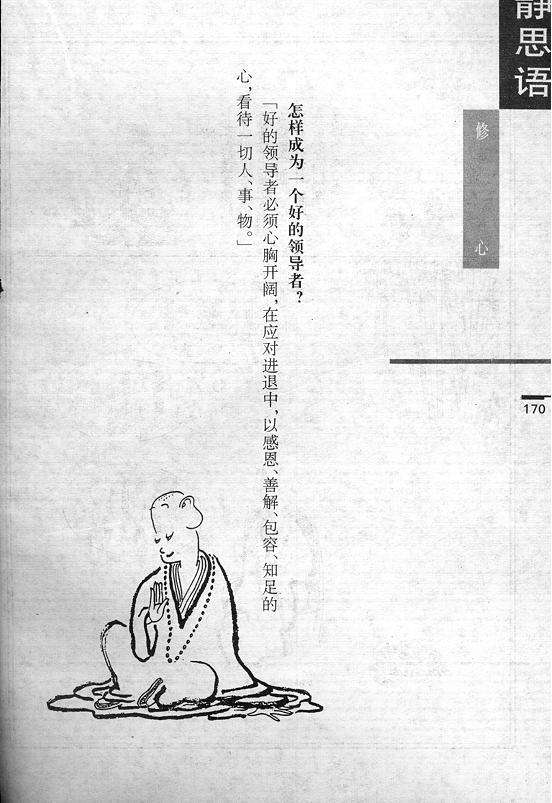 静思语
修心
170
怎样成为一个好的领导者？
「好的领导者必须心胸开阔，在应对进退中，以感恩、善解、包容、知足的
心，看待一切人、事、物。」